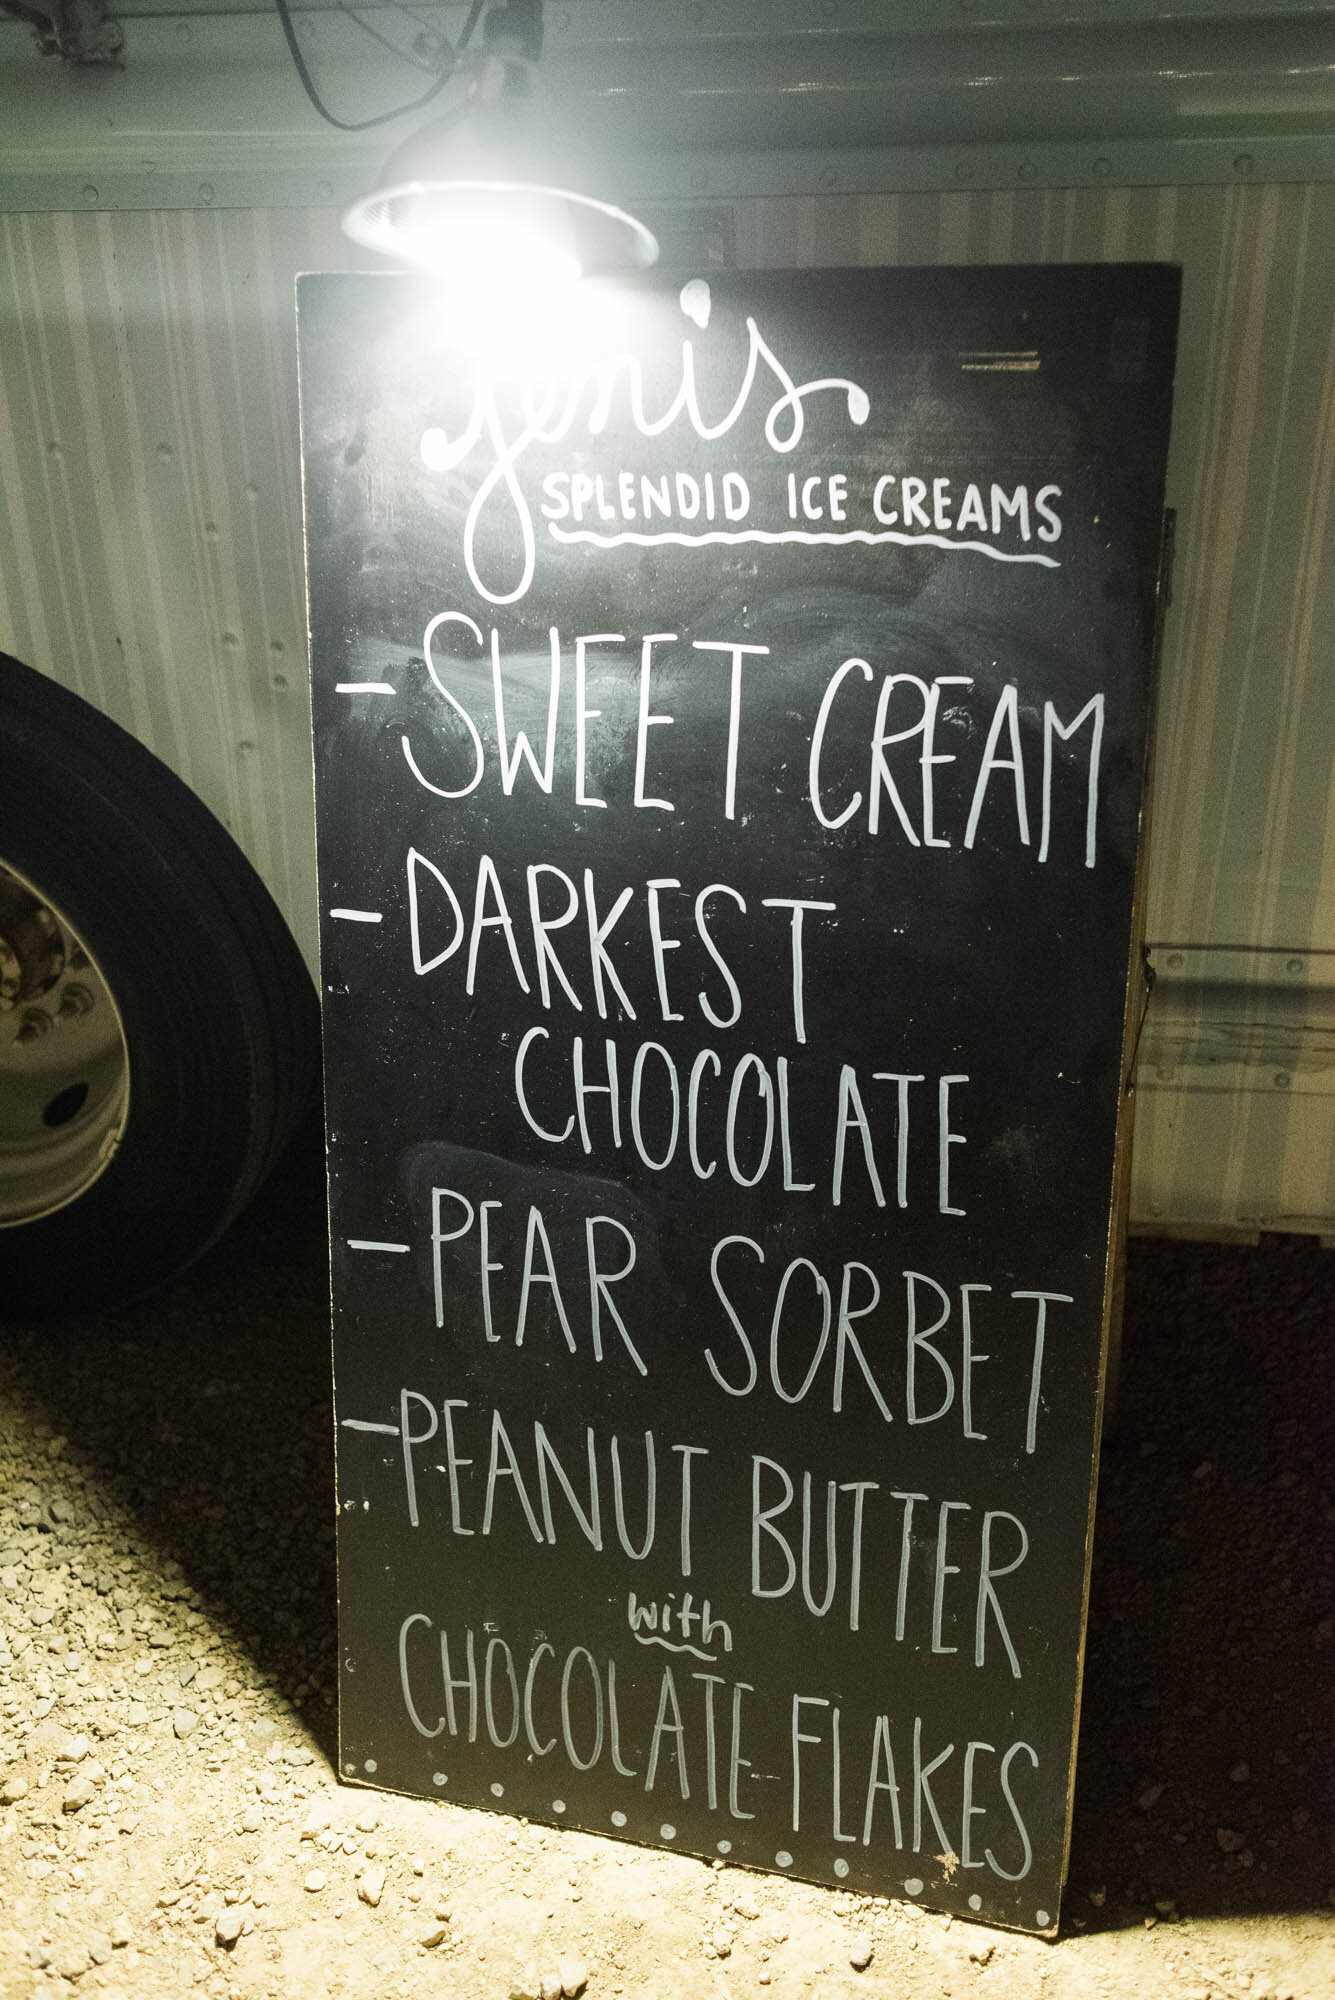 Jeni's
SPLENDID ICE CREAMS
- SWEET CREAM
- DARKEST
CHOCOLATE
- PEAR SORBET
- PEANUT BUTTER
with
CHOCOLATE FLAKES